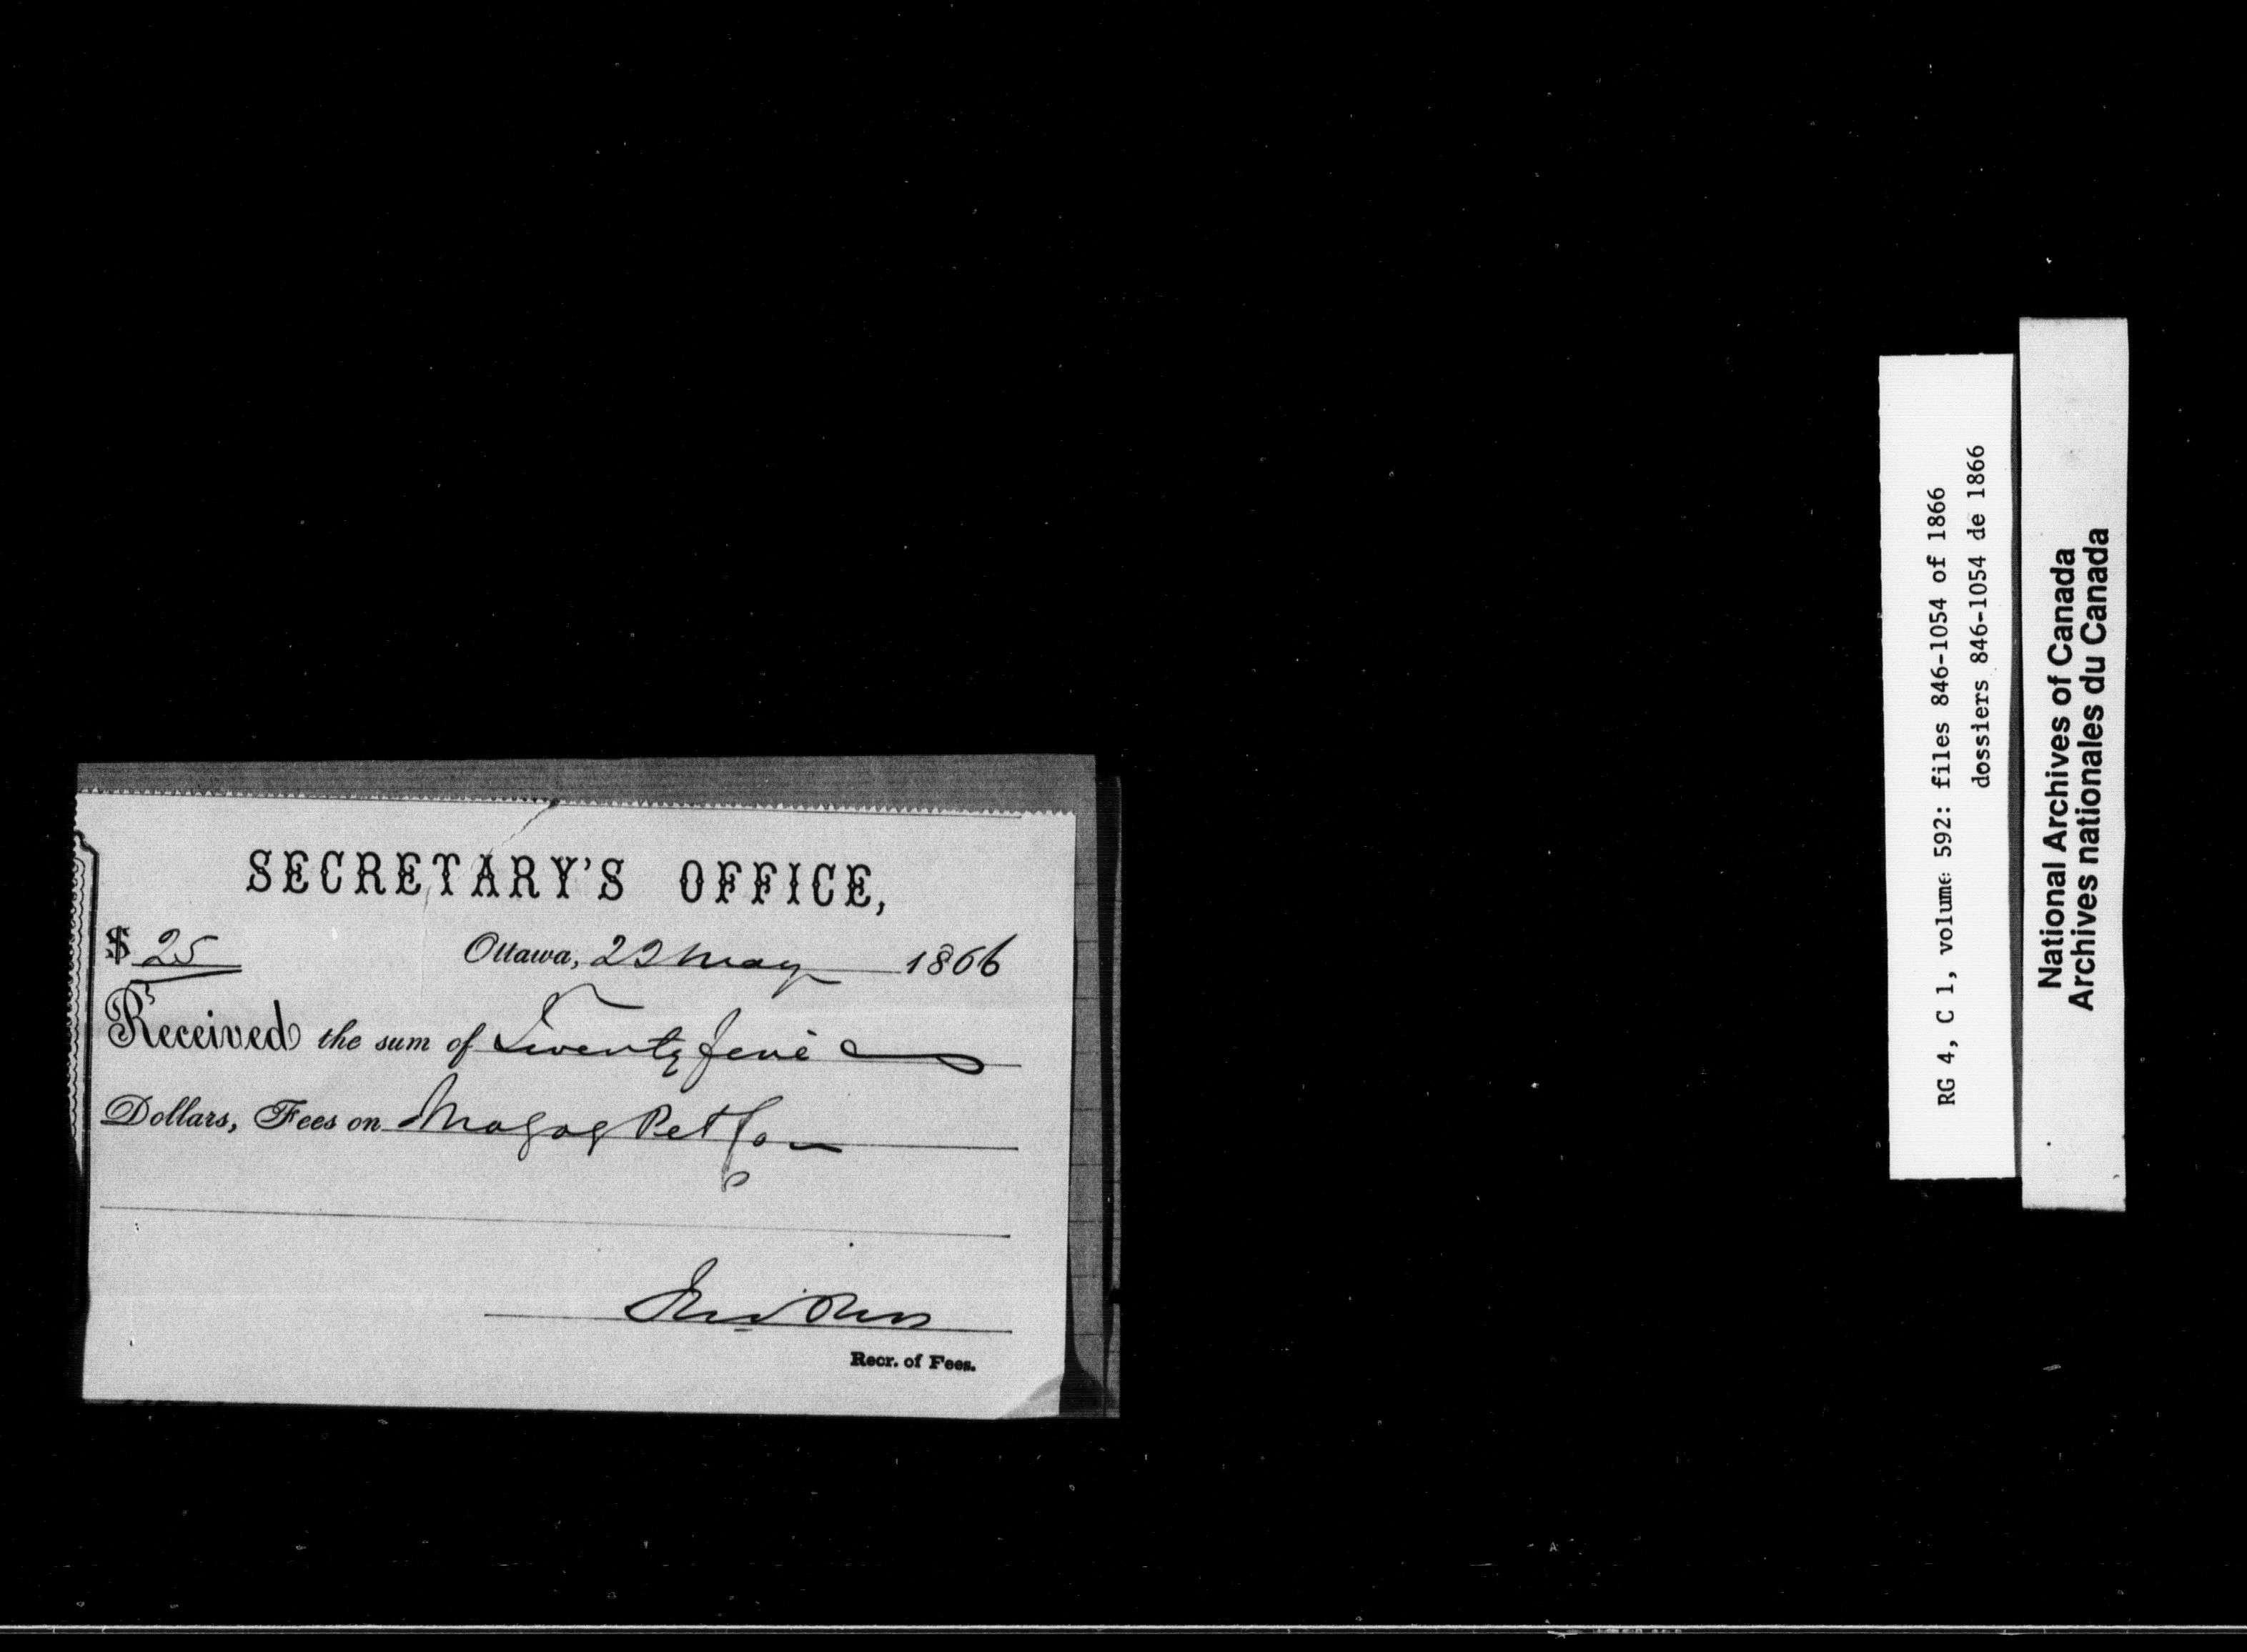 SECRETARY'S OFFICE,
$ 25 Ottawa, 22 May 1866
Received the sum of Twenty five
Dollars, Fees on Magog Pet
Recr. of Fees.
RG 4, C 1, volume 592: files 846-1054 of 1866
dossiers 846-1054 de 1866
National Archives of Canada
Archives nationales du Canada